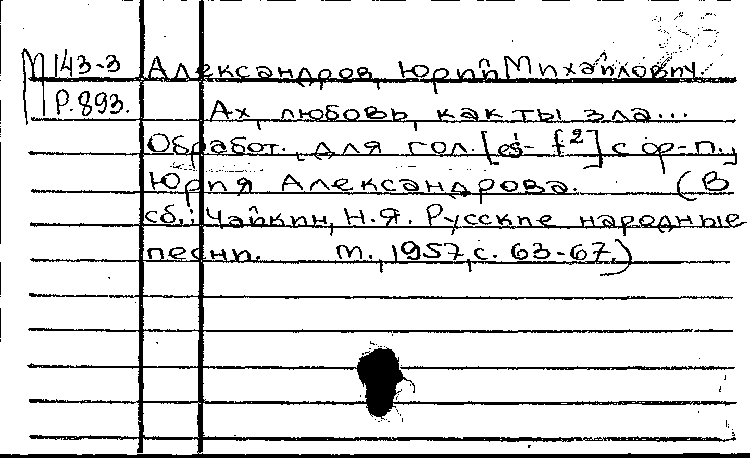 М 143-3 Александров, Юрий Михайлович.
Р.893. Ах, любовь, как ты зла...
Обработ. для гол. [es¹- f²] с ор-п.,
Юрия Александрова. (В
сб.: Чайкин, Н.Я. Русские народные
песни. М., 1957, с. 63-67.)